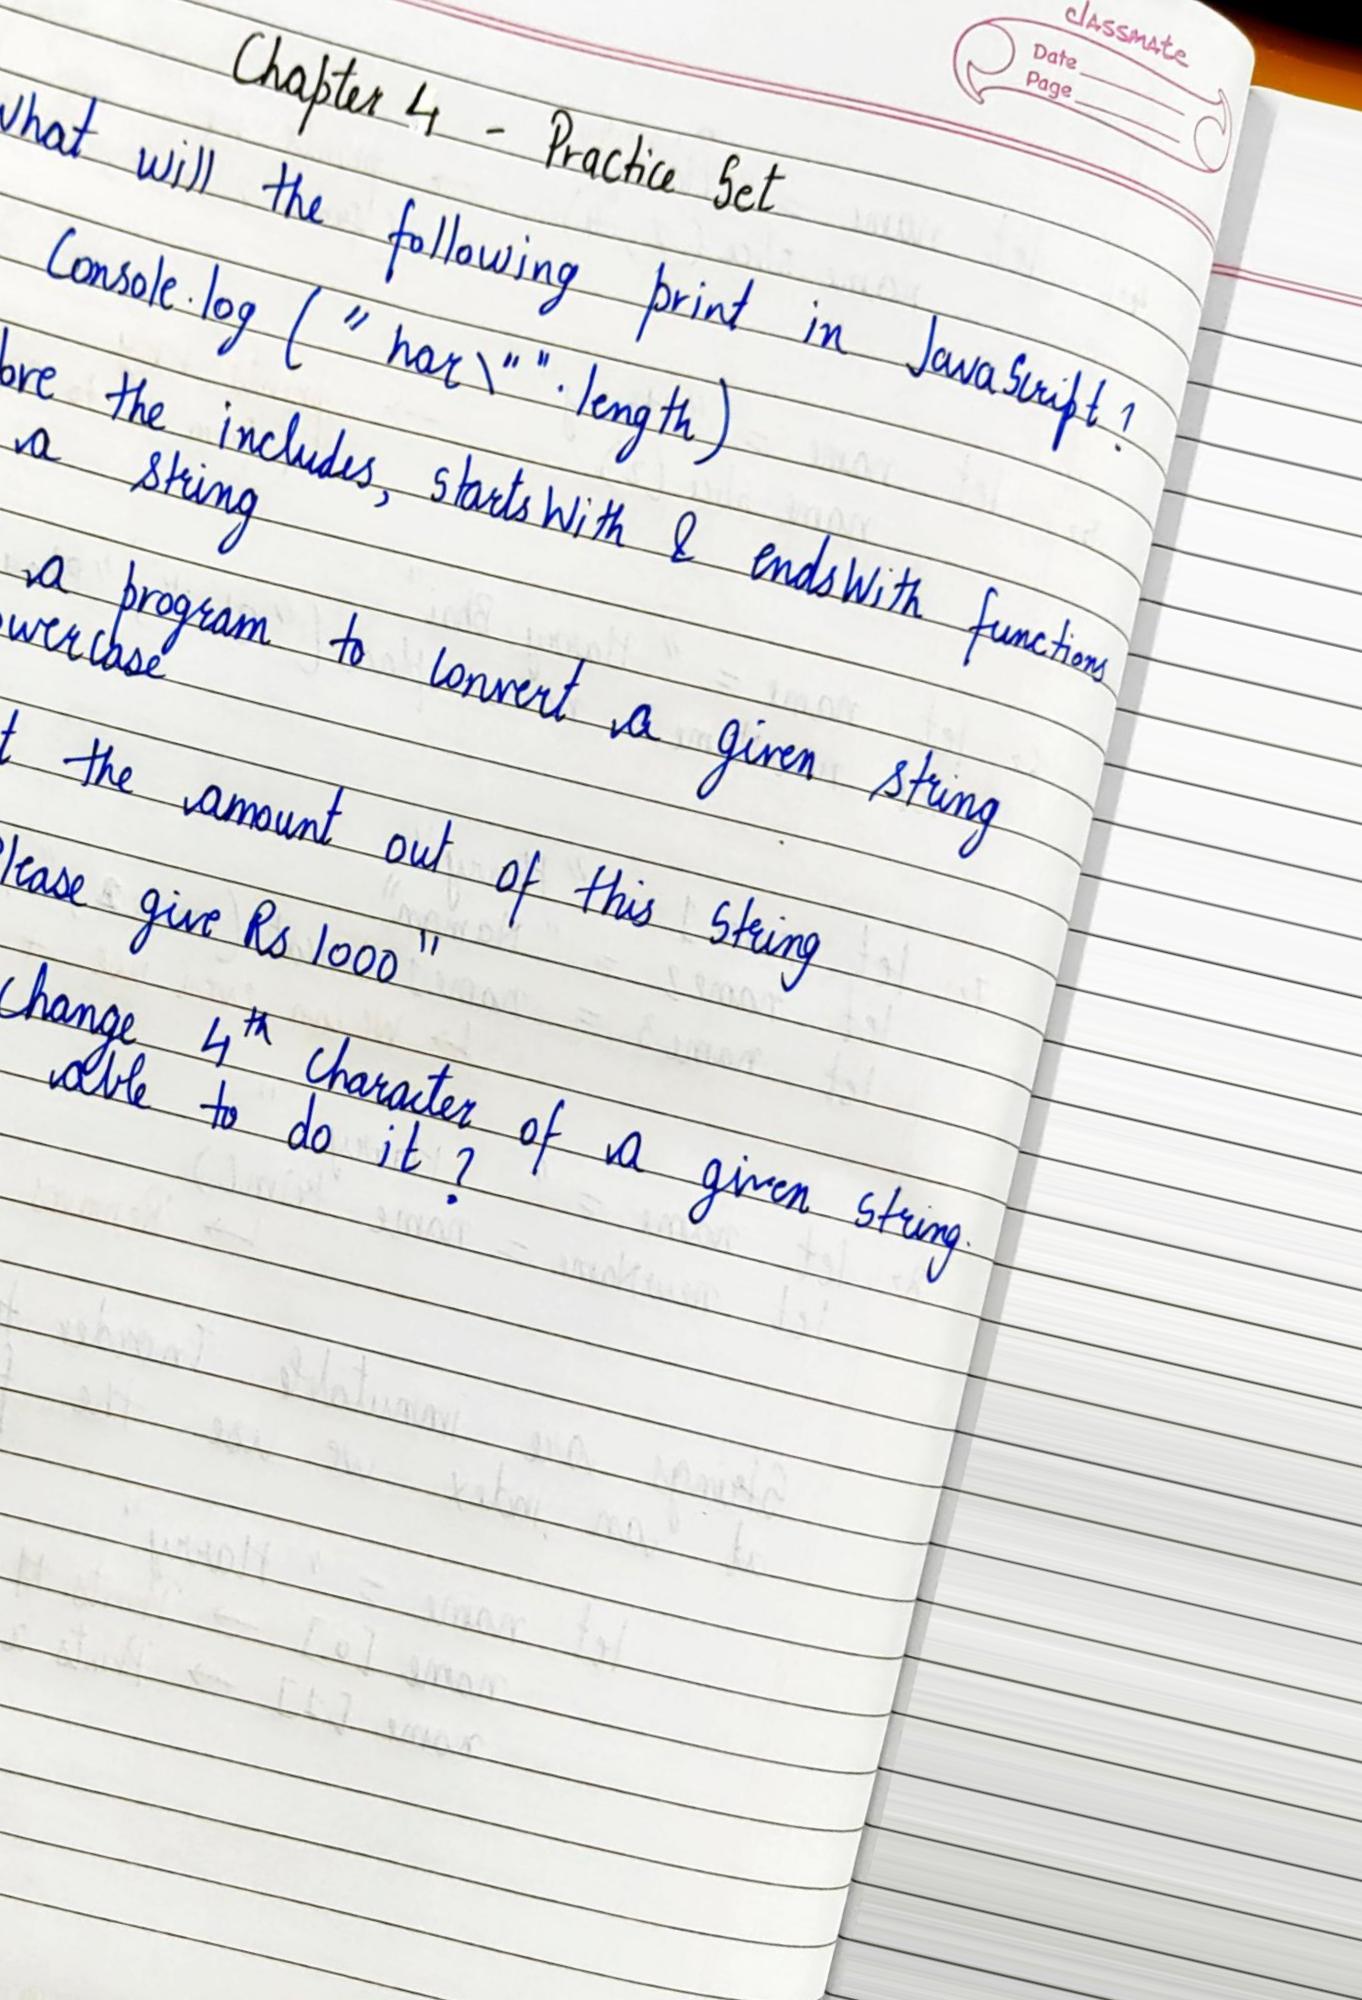 classmate
Date
Page
Chapter 4 - Practice Set
What will the following print in JavaScript?
Console.log ("har\"".length)
the includes, startsWith & endsWith functions
a string
a program to convert a given string
the amount out of this string
Please give Rs 1000"
Change 4th character of a given string.
able to do it?